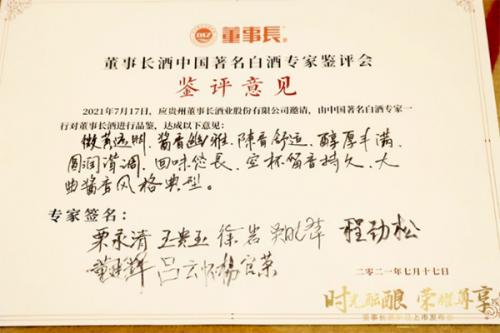 董事長
董事长酒中国著名白酒专家鉴评会
鉴评意见
2021年7月17日，应贵州董事长酒业股份有限公司邀请，由中国著名白酒专家一
行对董事长酒进行品鉴，达成以下意见：
微黄透明、酱香幽雅、陈香舒适、醇厚丰满、
圆润清调、回味悠长、空杯留香持久、大
曲酱香风格典型。
专家签名：
栗永清 王贵玉 徐岩 程劲松
吕云怀 杨官荣
二〇二一年七月十七日
时光酝酿 荣耀尊享